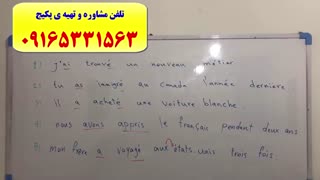 تلفن مشاوره و تهیه ی پکیج
۰۹۱۶۵۳۳۱۵۶۳
1) j'ai trouvé un nouveau métier
2) tu as immigré au canada l'année dernière
3) il a acheté une voiture blanche
4) nous avons appris le français pendant deux ans
5) mon frère a voyagé aux états.unis trois fois.